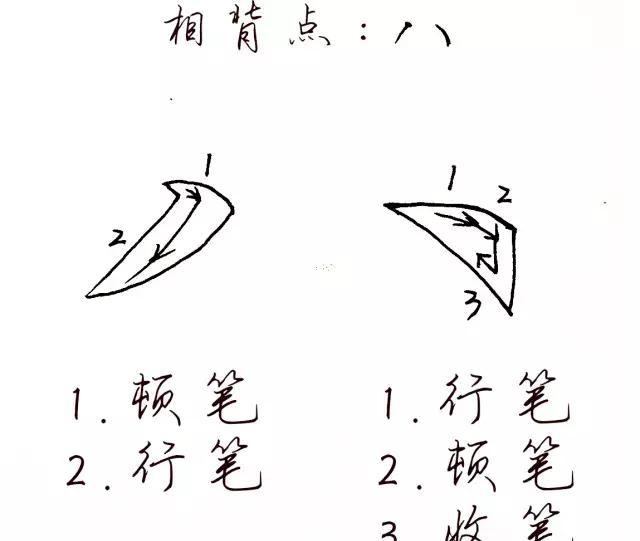 相背点：八
1
2
1 2
3
1.顿笔
2.行笔
1.行笔
2.顿笔
3.收笔